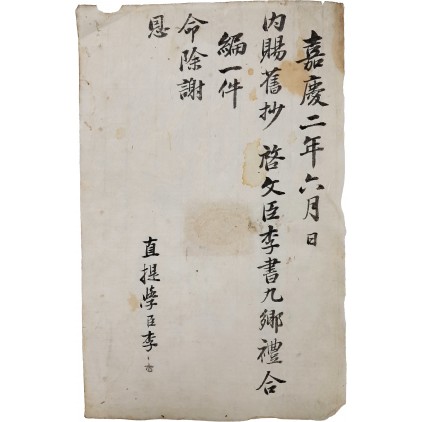 嘉慶二年六月日
内賜舊抄 啓文臣李書九鄉禮合
編一件
命除謝
恩
直提學臣李